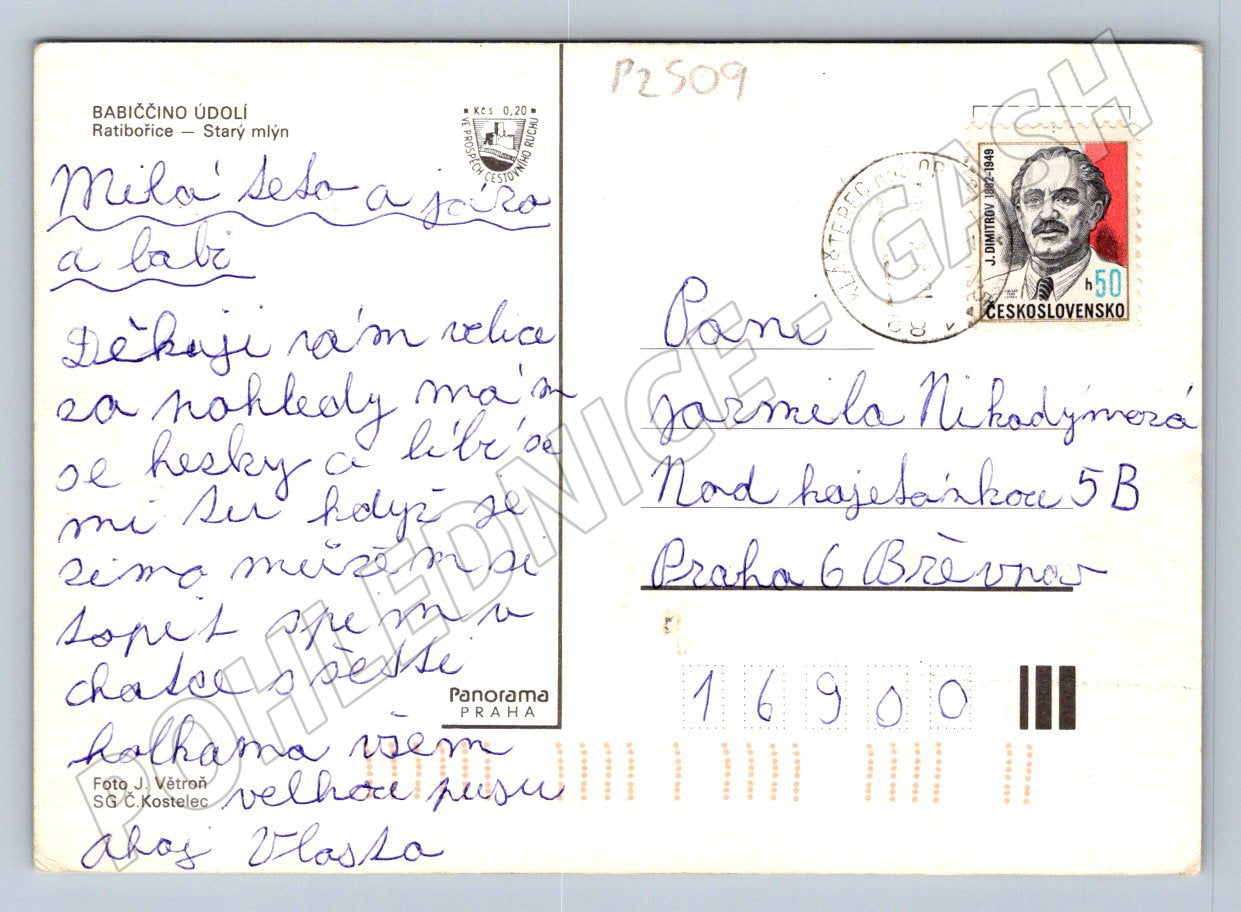 P2509
BABIČČINO ÚDOLÍ
Ratibořice — Starý mlýn
Kčs 0,20
VE PROSPĚCH CESTOVNÍHO RUCHU
Milá teto a járo
a babi
Děkuji vám velice
za pohledy mám
se hezky a líbí se
mi tu když je
zima můžem si
topit spím v
chatce s šesti
holkama všem
velkou pusu
ahoj Vlasta
Panorama
PRAHA
Foto J. Větroň
SG Č.Kostelec
J. DIMITROV 1882-1949
h50
ČESKOSLOVENSKO
KLÁŠTEREC
Paní
jarmila Nikodýmová
Nad kajetánkou 5B
Praha 6 Břěvnov
16900
POHLEDNICE - GASH